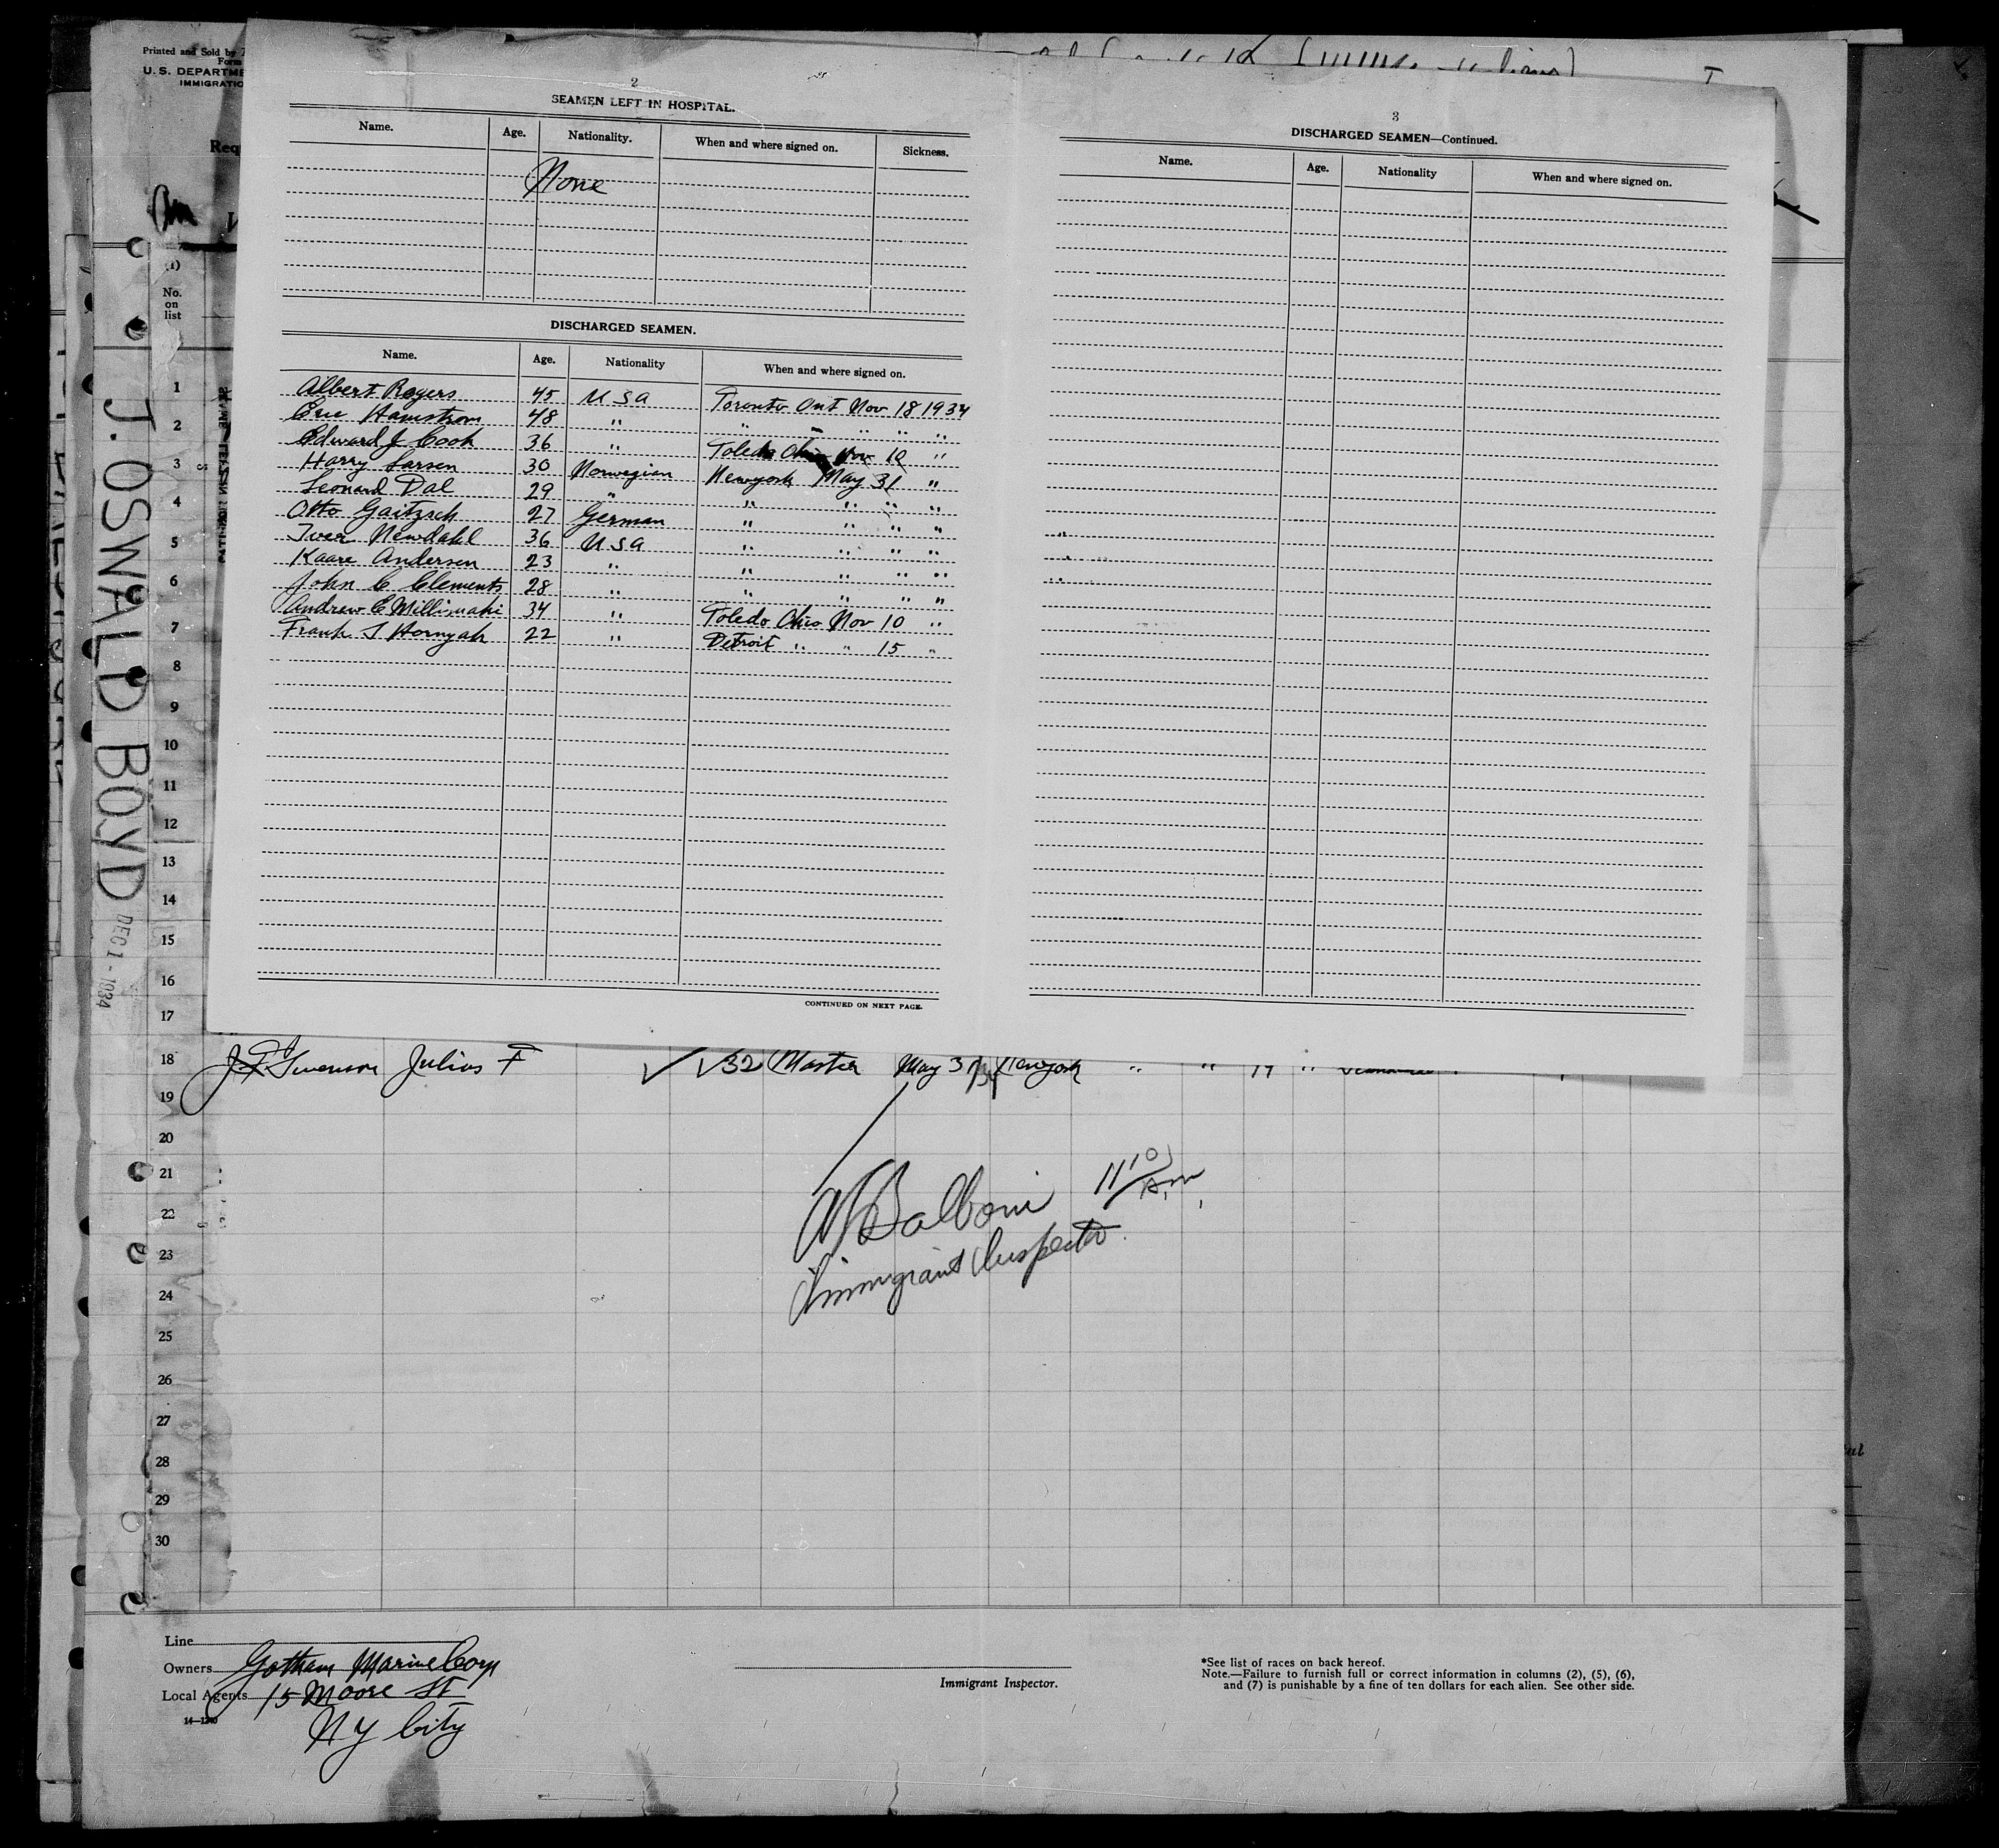 Printed and Sold by
Form
U. S. DEPARTME
IMMIGRATIO
Req
(1)
No.
on
list
J. OSWALD BOYD
DEC 1 - 1934
2
SEAMEN LEFT IN HOSPITAL.
Name. Age. Nationality. When and where signed on. Sickness.
None
DISCHARGED SEAMEN.
Name. Age. Nationality When and where signed on.
Albert Rogers 45 USA Toronto Ont Nov 18 1934
Eric Hamstrom 48 " " " " " "
Edward J Cook 36 " Toledo Ohio Nov 10 "
Harry Larsen 30 Norwegian Newyork May 31 "
Leonard Dal 29 " " " " "
Otto Gaitzsch 27 German " " " "
Iver Newdahl 36 USA " " " "
Kaare Andersen 23 " " " " "
John C Clements 28 " " " " "
Andrew E Millimaki 34 " Toledo Ohio Nov 10 "
Frank J Hornyak 22 " Detroit " " 15 "
CONTINUED ON NEXT PAGE.
3
DISCHARGED SEAMEN—Continued.
Name. Age. Nationality When and where signed on.
1
2
3
4
5
6
7
8
9
10
11
12
13
14
15
16
17
18 Swenson Julius F 32 Master May 31/34 Newyork " " 19 "
19
20
21
22
23
24
25
26
27
28
29
30
Balboni 11 10 A.m.
Immigrant Inspector.
Line
Owners Gotham Marine Corp
Local Agents 15 Moore St
N Y City
14—1240
Immigrant Inspector.
*See list of races on back hereof.
Note.—Failure to furnish full or correct information in columns (2), (5), (6),
and (7) is punishable by a fine of ten dollars for each alien. See other side.